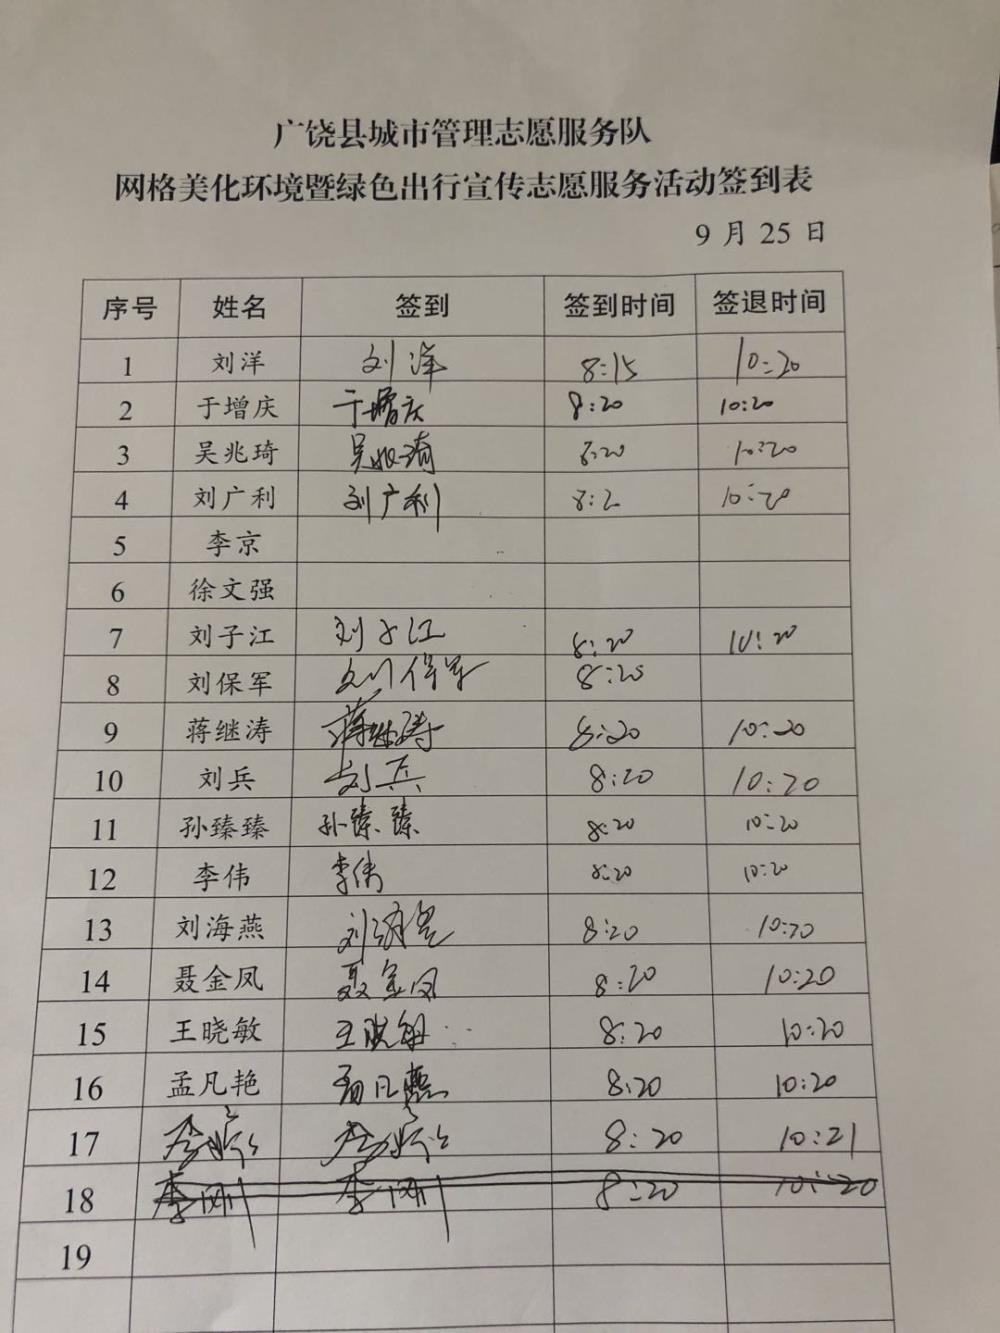 广饶县城市管理志愿服务队
网格美化环境暨绿色出行宣传志愿服务活动签到表
9 月 25 日
序号 姓名 签到 签到时间 签退时间
1 刘洋 刘洋 8:15 10:20
2 于增庆 于增庆 8:20 10:20
3 吴兆琦 吴兆琦 8:20 10:20
4 刘广利 刘广利 8:2 10:20
5 李京
6 徐文强
7 刘子江 刘子江 8:20 10:20
8 刘保军 刘保军 8:20
9 蒋继涛 蒋继涛 8:20 10:20
10 刘兵 刘兵 8:20 10:20
11 孙臻臻 孙臻臻 8:20 10:20
12 李伟 李伟 8:20 10:20
13 刘海燕 刘海燕 8:20 10:20
14 聂金凤 聂金凤 8:20 10:20
15 王晓敏 王晓敏 8:20 10:20
16 孟凡艳 孟凡艳 8:20 10:20
17 8:20 10:21
18 李刚 李刚 8:20 10:20
19